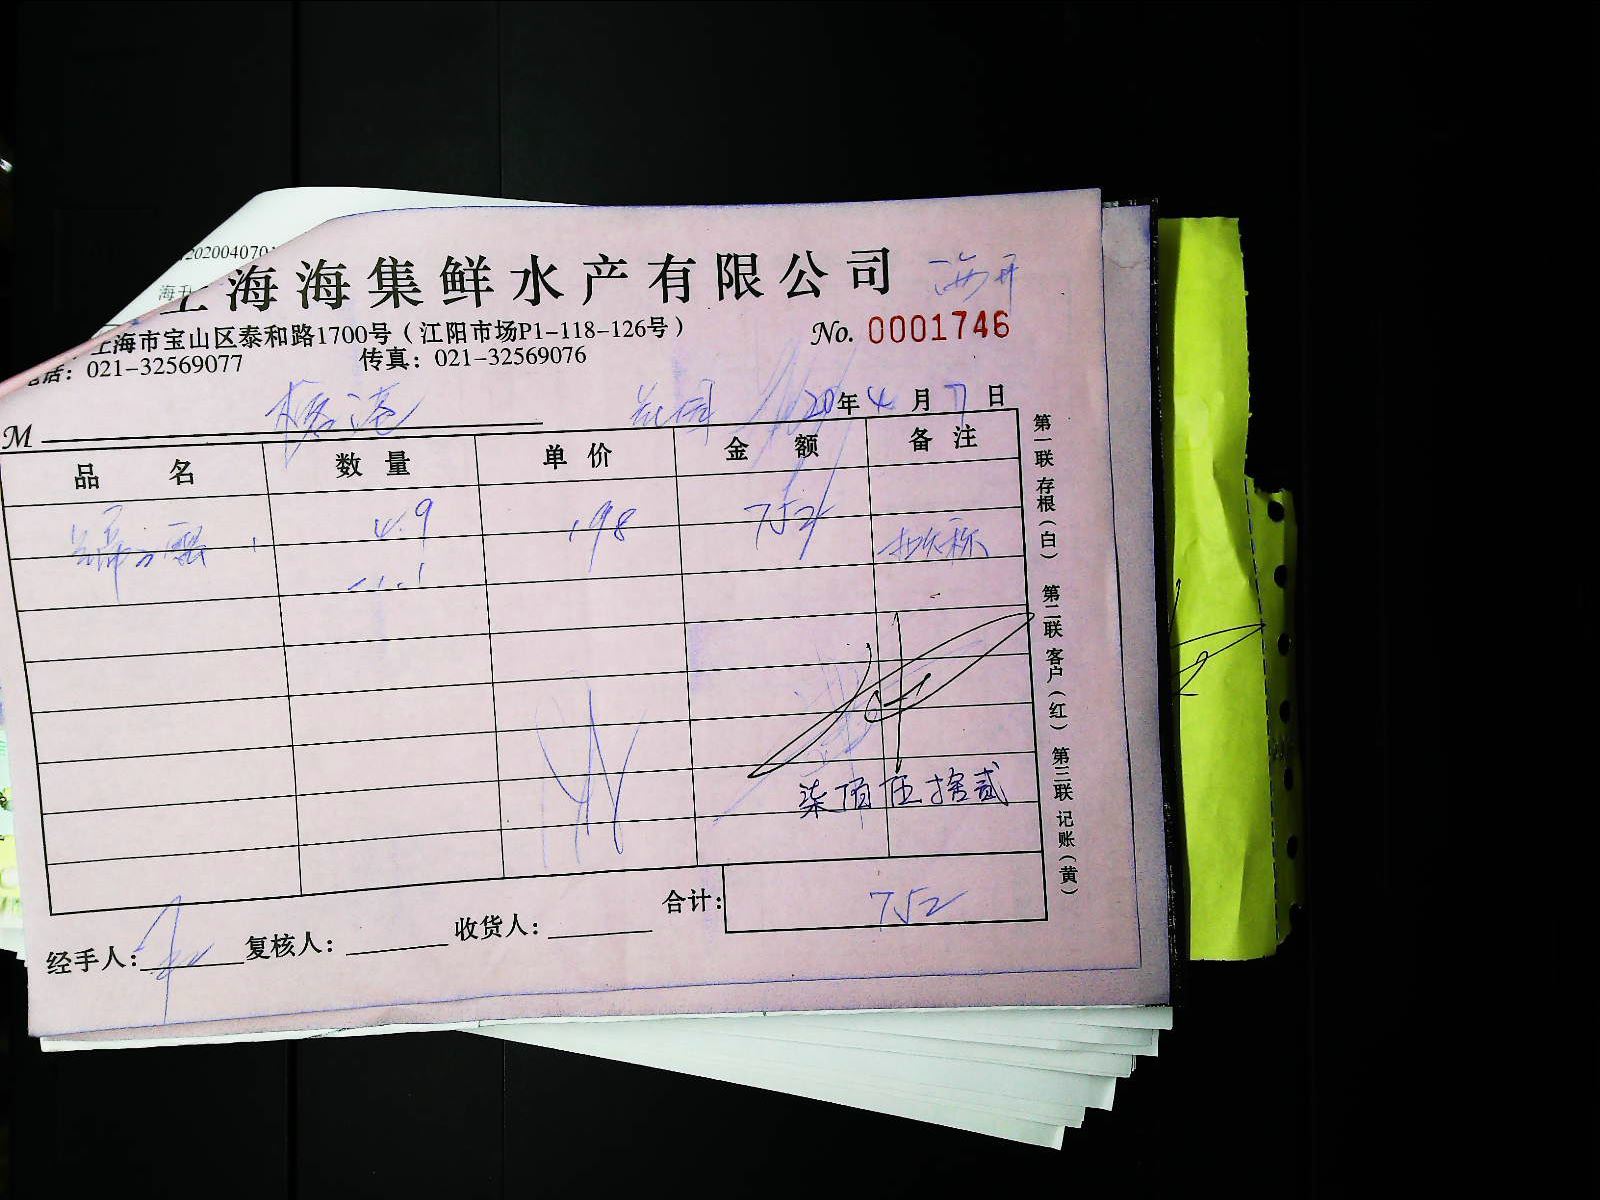 2020040701
海升
上海海集鲜水产有限公司
海升
上海市宝山区泰和路1700号（江阳市场P1-118-126号）
No. 0001746
电话：021-32569077 传真：021-32569076
M 花园 20年4月7日
品名 数量 单价 金额 备注
4.9 198 752
-1.1
柒佰伍拾贰
合计： 752
经手人： 复核人： 收货人：
第一联 存根（白） 第二联 客户（红） 第三联 记账（黄）